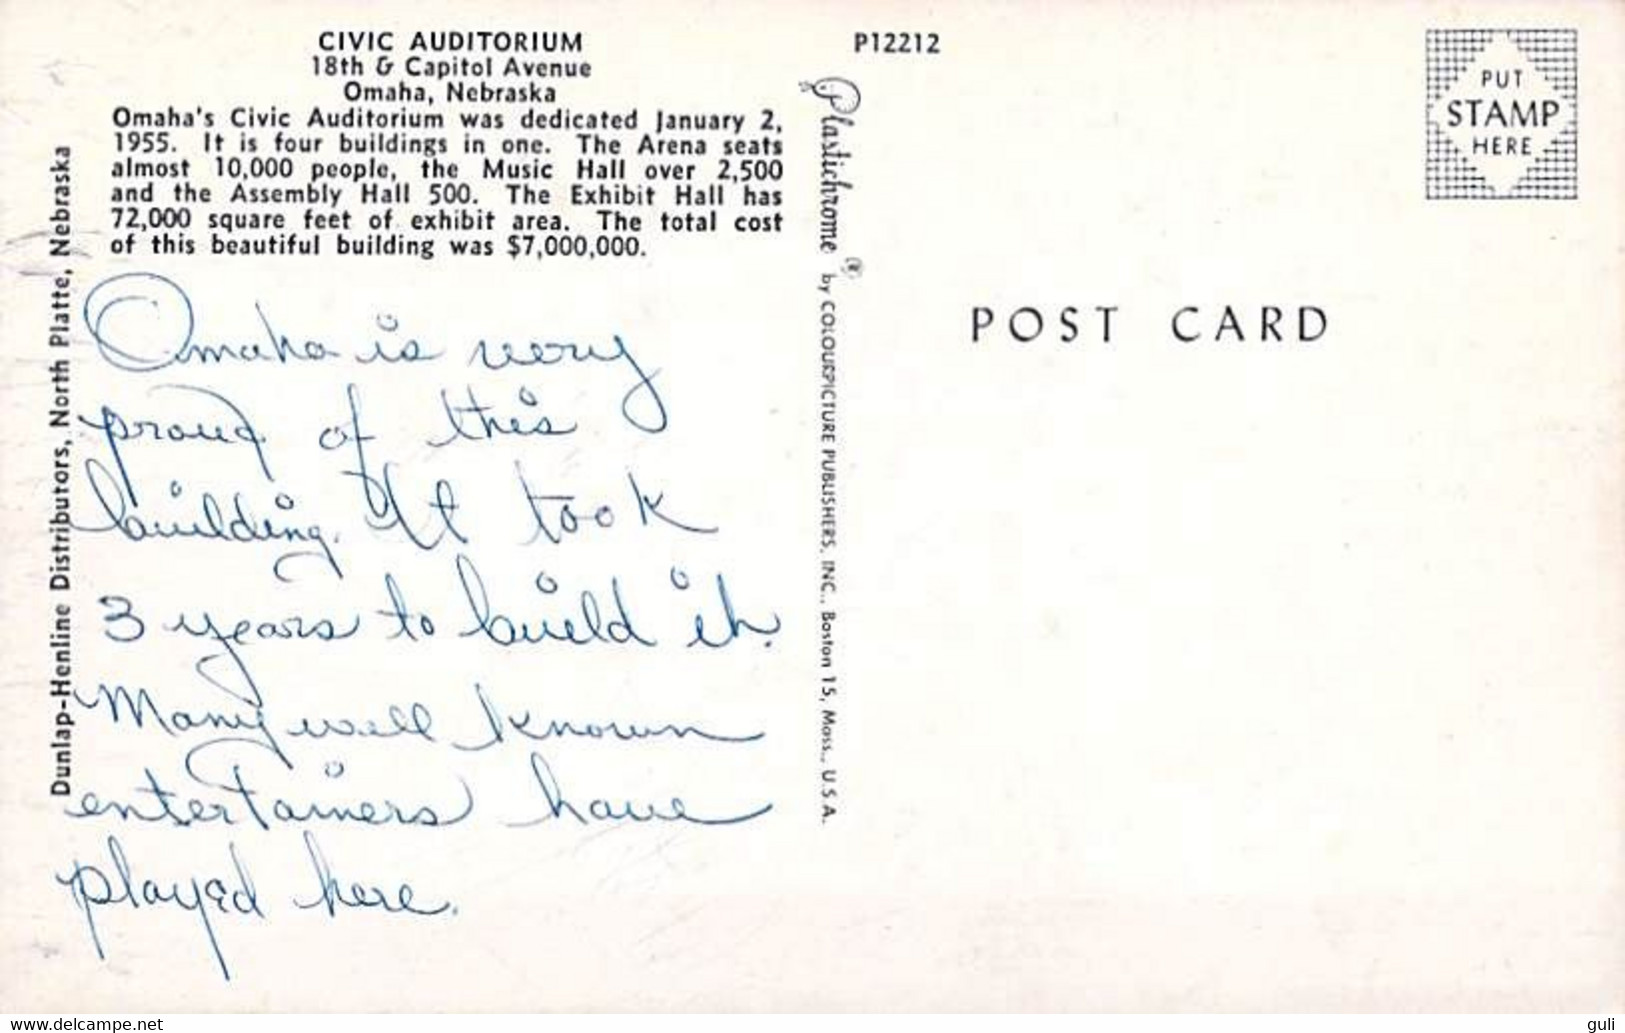 CIVIC AUDITORIUM
18th & Capitol Avenue
Omaha, Nebraska
Omaha's Civic Auditorium was dedicated January 2,
1955. It is four buildings in one. The Arena seats
almost 10,000 people, the Music Hall over 2,500
and the Assembly Hall 500. The Exhibit Hall has
72,000 square feet of exhibit area. The total cost
of this beautiful building was $7,000,000.
Dunlap-Henline Distributors, North Platte, Nebraska
Omaha is very
proud of this
building. It took
3 years to build it.
Many well known
entertainers have
played here.
P12212
Plastichrome ® by COLOURPICTURE PUBLISHERS, INC., Boston 15, Mass., U.S.A.
PUT
STAMP
HERE
POST CARD
www.delcampe.net
guli